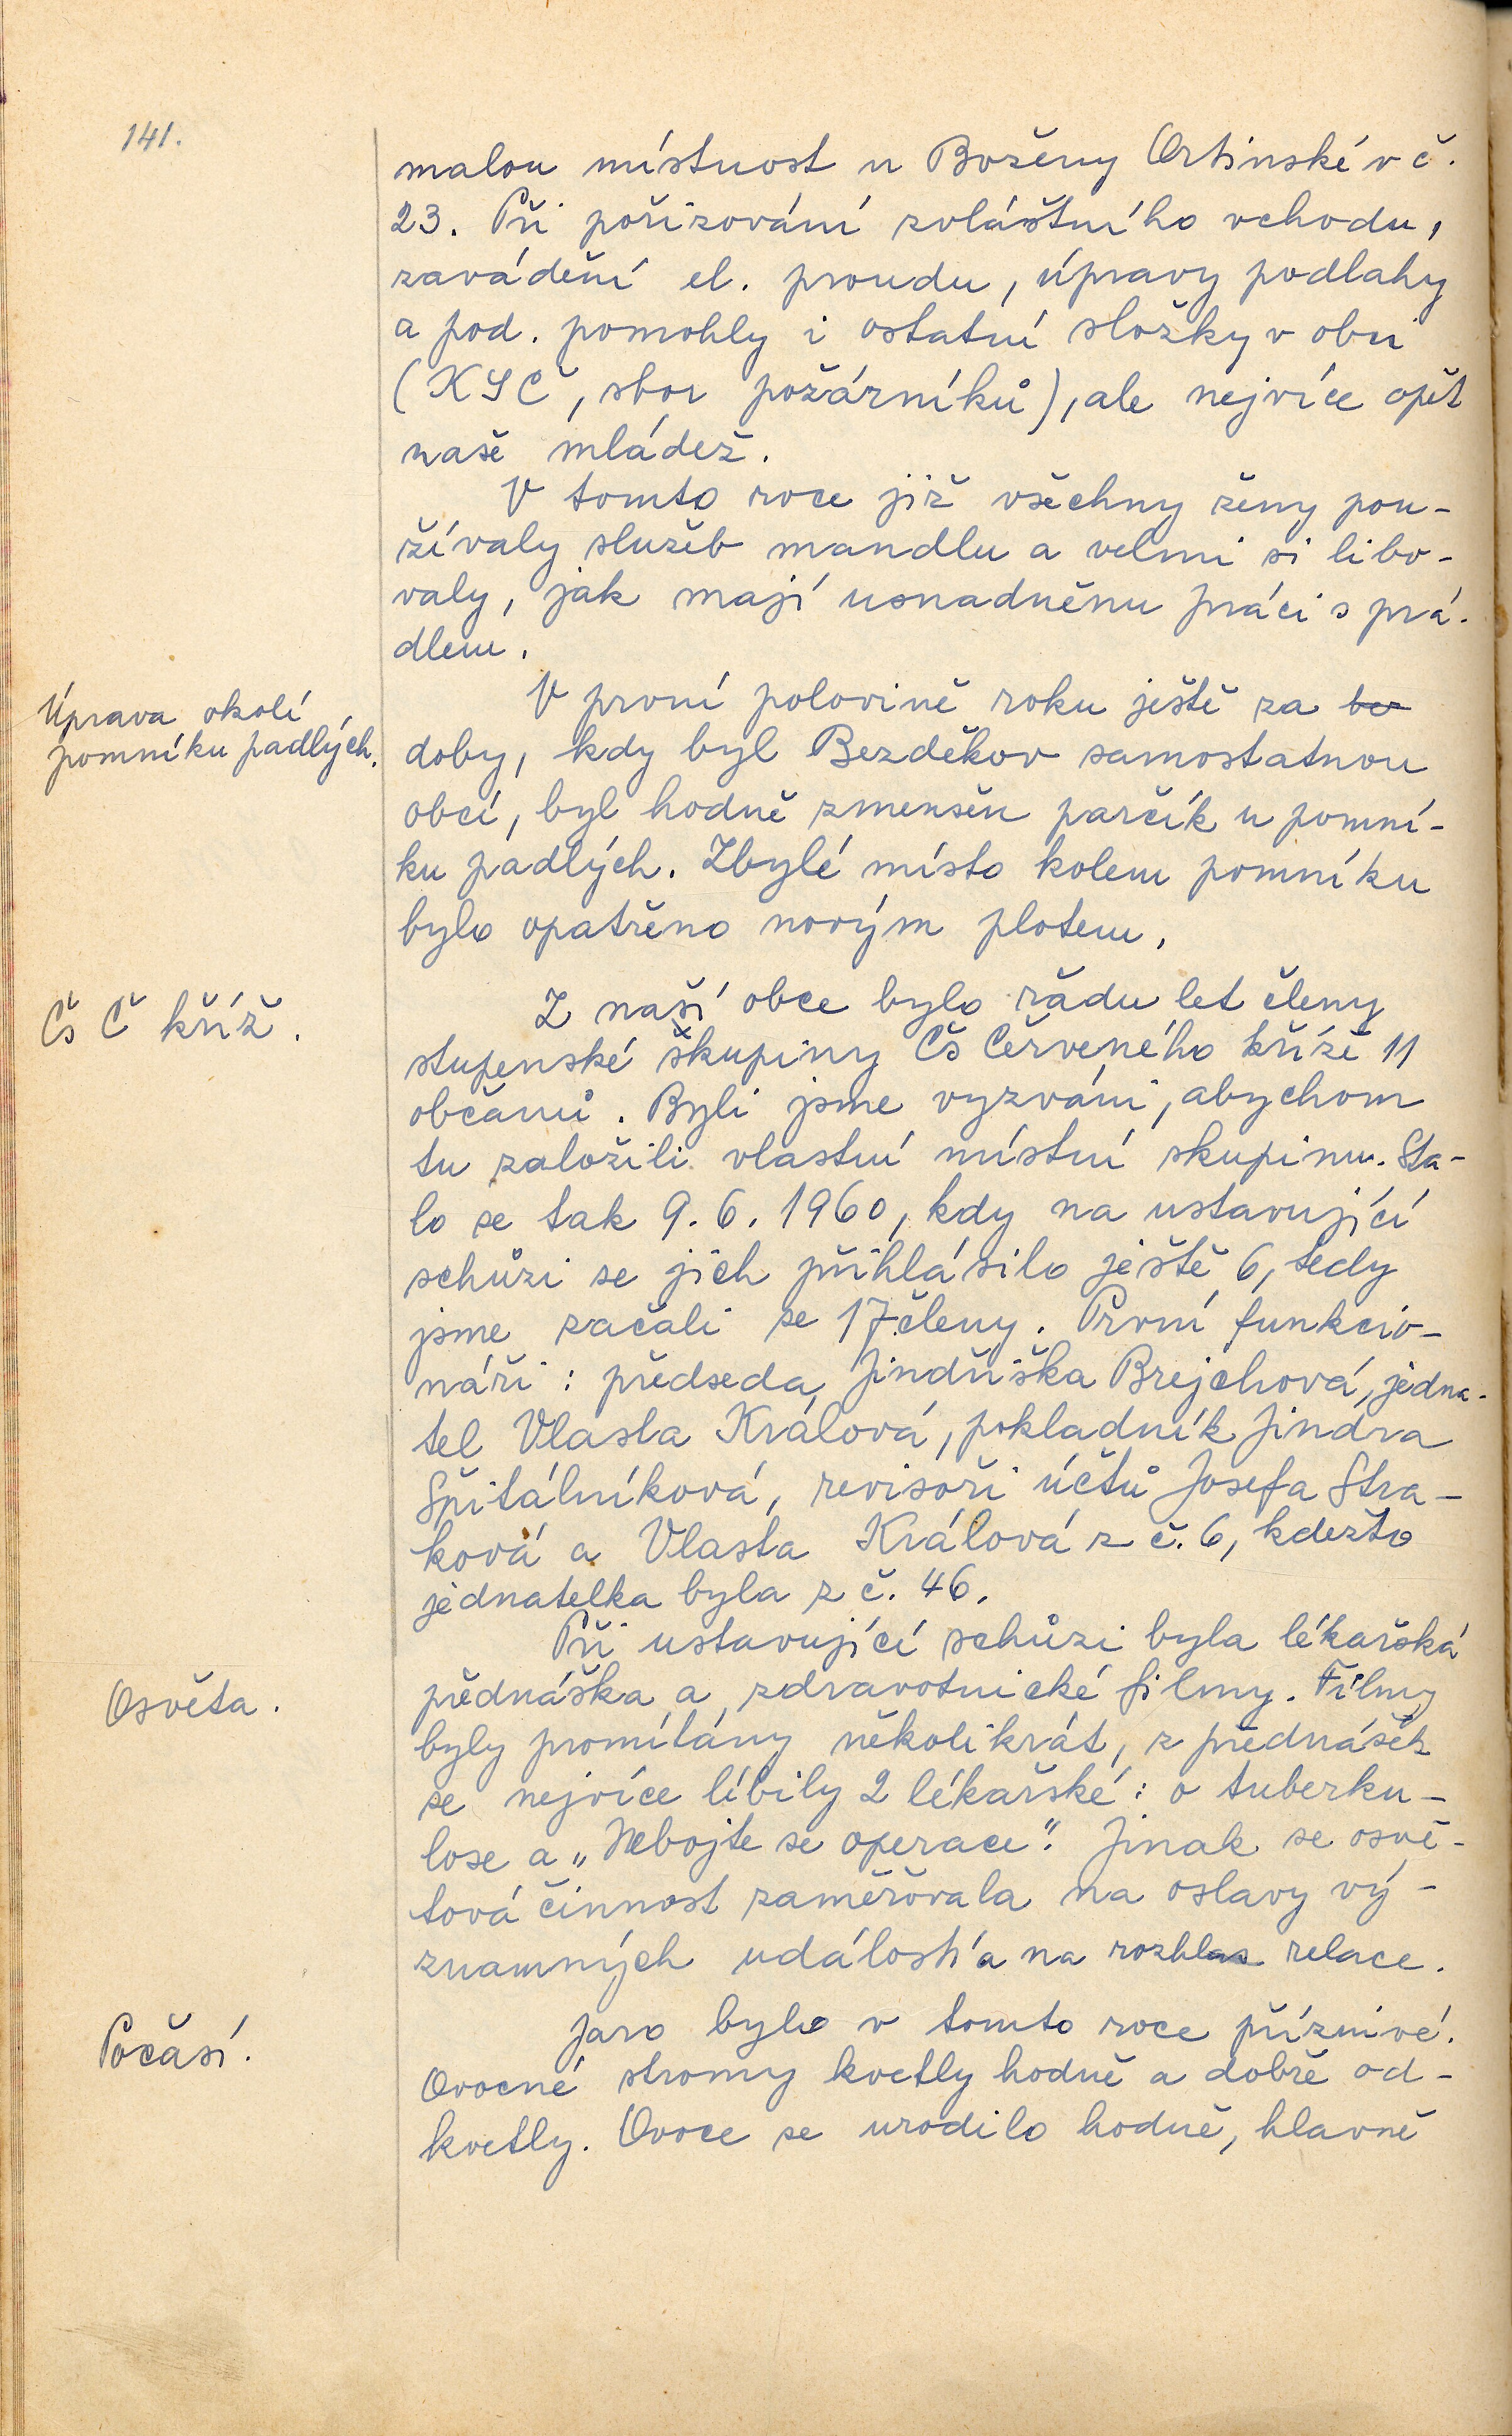 141.
malou místnost u Boženy Ortinské v č.
23. Při pořizování zvláštního vchodu,
zavádění el. proudu, úpravy podlahy
a pod. pomohly i ostatní složky v obci
(KSČ, sbor požárníků), ale nejvíce opět
naše mládež.
V tomto roce již všechny ženy pou-
žívaly služeb mandlu a velmi si libo-
valy, jak mají usnadněnu práci s prá-
dlem.
Úprava okolí
pomníku padlých.
V první polovině roku ještě za be
doby, kdy byl Bezděkov samostatnou
obcí, byl hodně zmenšen parčík u pomní-
ku padlých. Zbylé místo kolem pomníku
bylo opatřeno novým plotem.
Čs Č kříž.
Z naší obce bylo řadu let členy
stupenské skupiny Čs Červeného kříže 11
občanů. Byli jsme vyzváni, abychom
tu založili vlastní místní skupinu. Sta-
lo se tak 9. 6. 1960, kdy na ustavující
schůzi se jich přihlásilo ještě 6, tedy
jsme začali se 17 členy. První funkcio-
náři: předseda Jindřiška Brejchová, jedna-
tel Vlasta Králová, pokladník Jindra
Špitálníková, revisoři účtů Josefa Stra-
ková a Vlasta Králová z č. 6, kdežto
jednatelka byla z č. 46.
Při ustavující schůzi byla lékařská
Osvěta.
přednáška a zdravotnické filmy. Filmy
byly promítány několikrát, z přednášek
se nejvíce líbily 2 lékařské: o tuberku-
lose a „Nebojte se operace". Jinak se osvě-
tová činnost zaměřovala na oslavy vý-
znamných událostí a na rozhlas relace.
Počasí.
Jaro bylo v tomto roce příznivé.
Ovocné stromy kvetly hodně a dobře od-
kvetly. Ovoce se urodilo hodně, hlavně